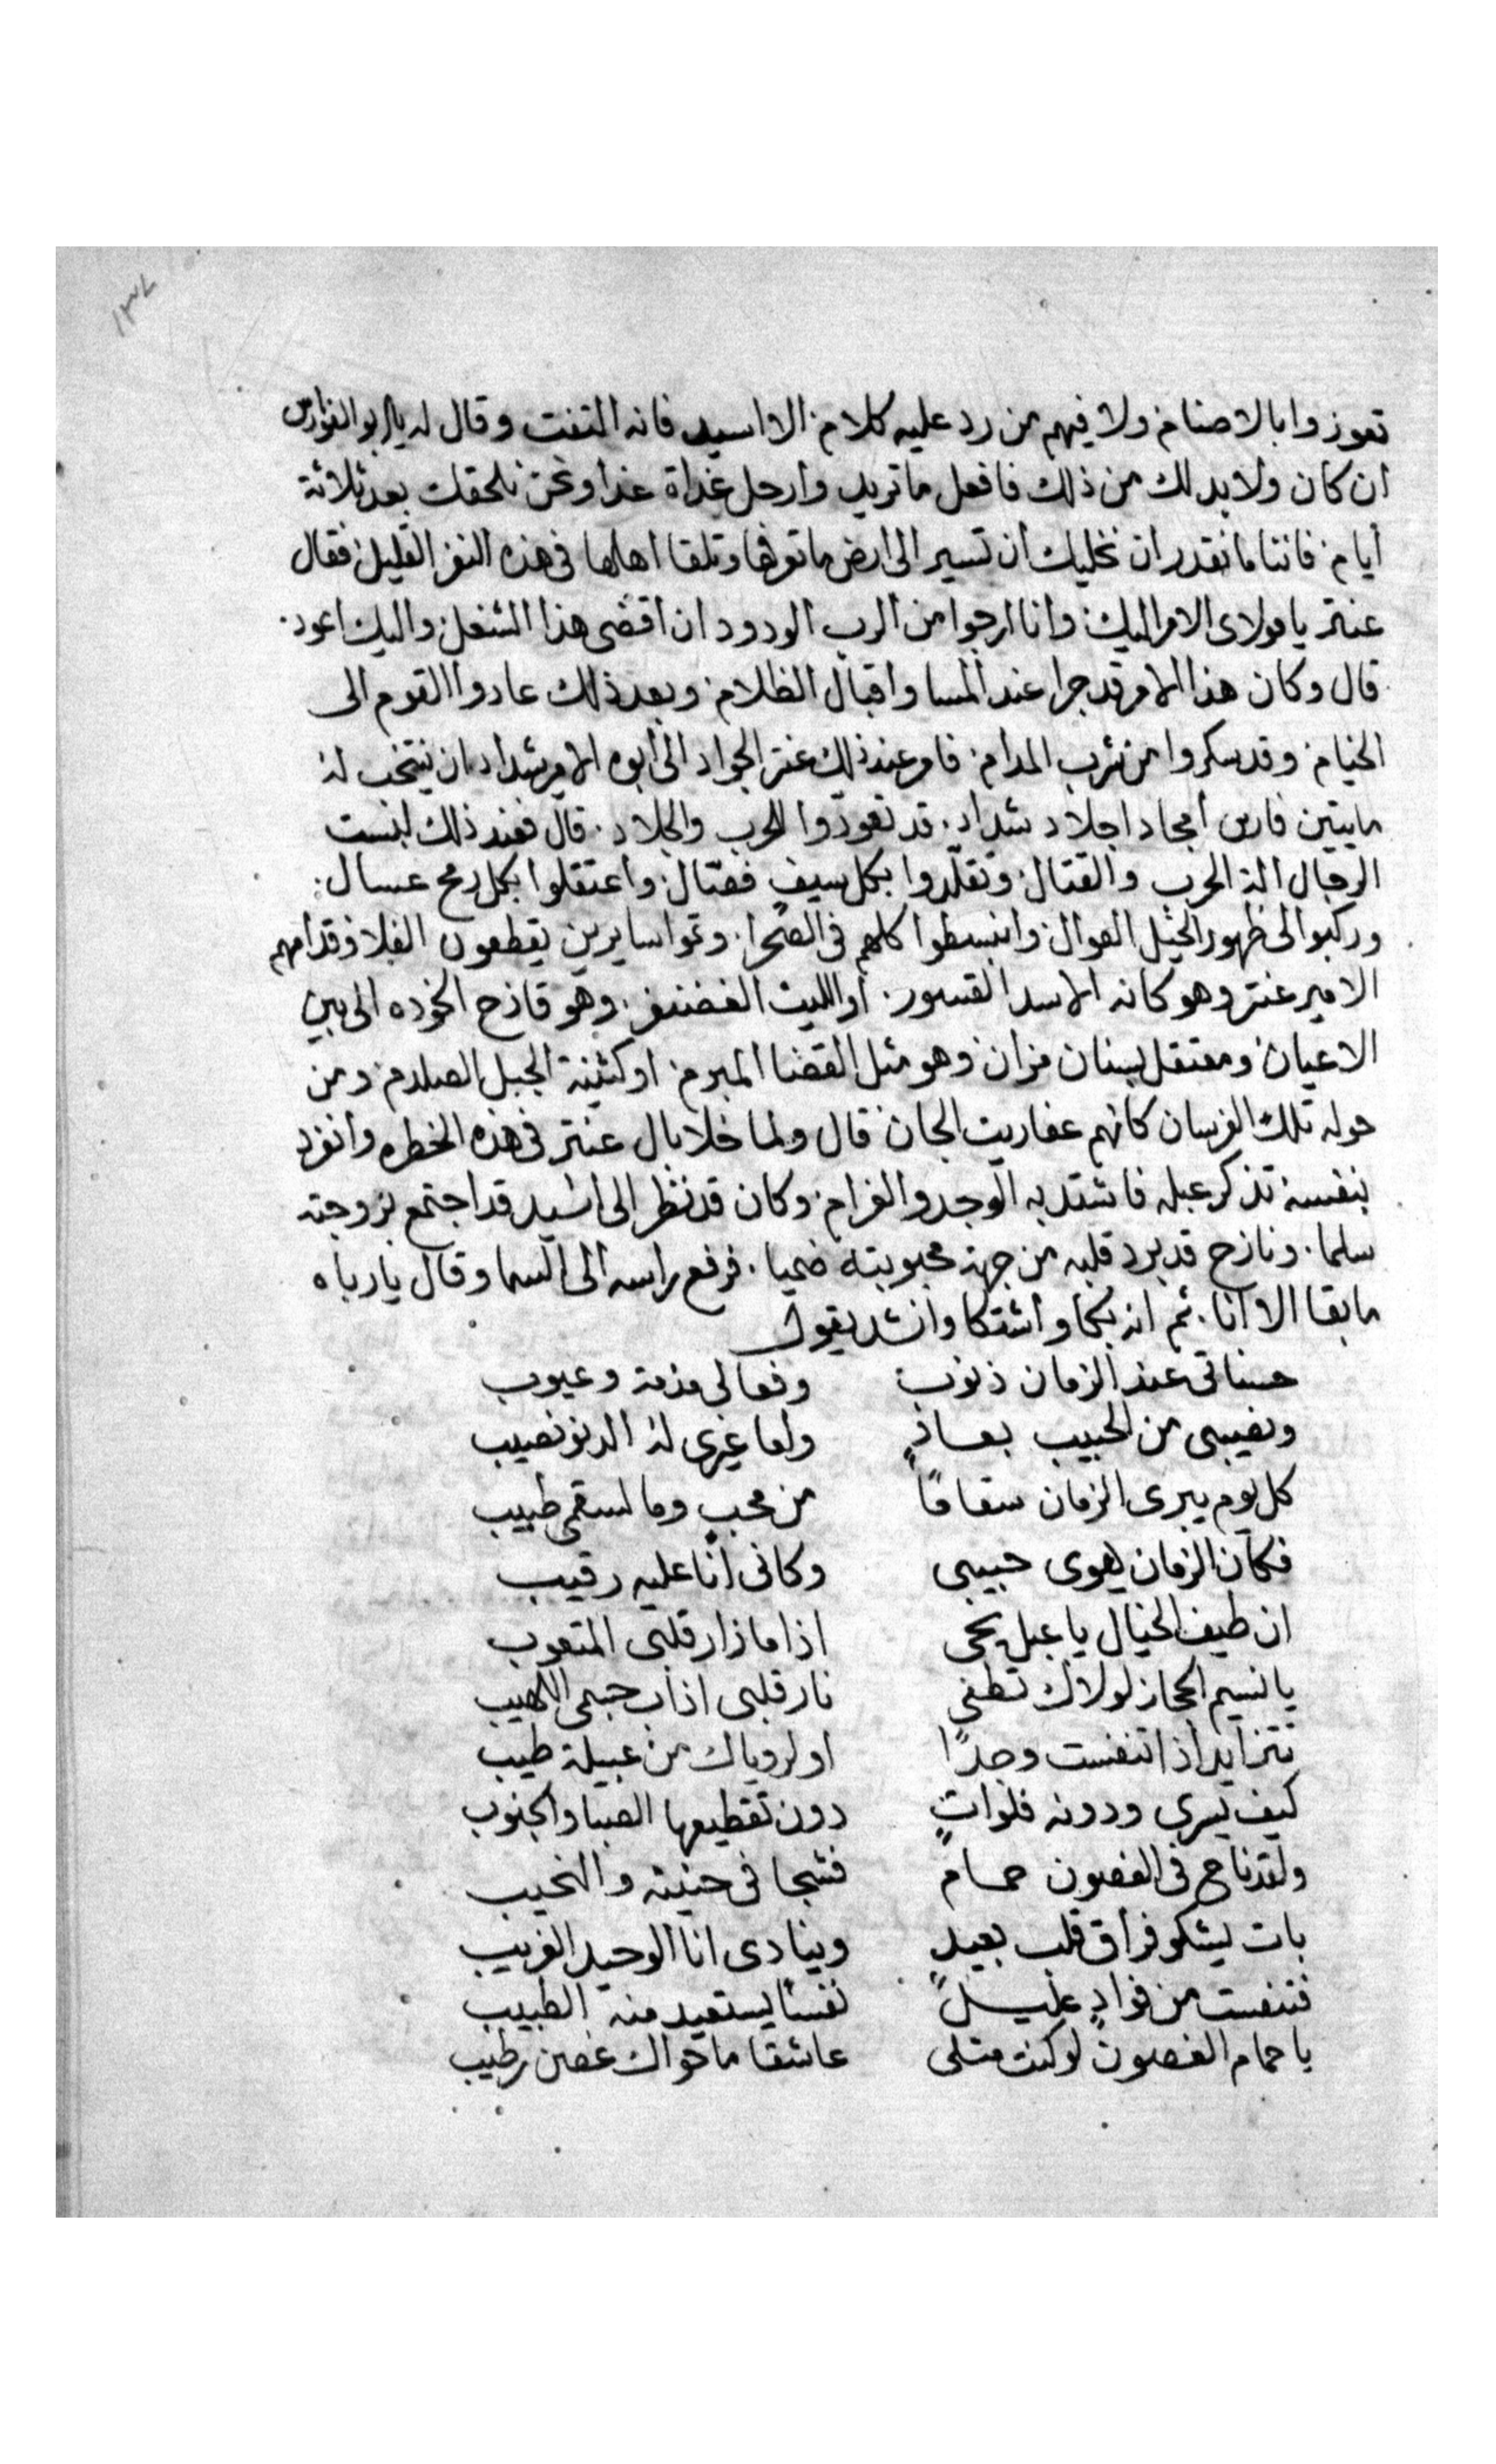 ١٣٧
تعوزوا بالاصنام ولا فيهم من رد عليه كلام الا اسيد فانه التفت وقال له يابو الفوارس
ان كان ولابد لك من ذلك فافعل ما تريد وارحل غداة غدا ونحن نلحقك بعد ثلاثة
أيام فاننا ما نقدر ان نخليك ان تسير الى ارض ما تعرفها وتلقا اهلها في هذه النفر القليل فقال
عنتر يا مولاى الامر اليك وانا ارجوا من الرب الودود ان اقضى هذا الشغل واليك اعود
قال وكان هذا الامر قد جرا عند المسا واقبال الظلام وبعد ذلك عادوا القوم الى
الخيام وقد سكروا من شرب المدام فامر عند ذلك عنتر الجواد الى أبوه الامير شداد ان ينتخب له
مايتين فارس أمجاد اجلاد شداد قد تعودوا للحرب والجلاد قال فعند ذلك لبست
الرجال الة الحرب والقتال وتقلدوا بكل سيف فصّال واعتقلوا بكل رمح عسال
وركبوا الى ظهور الخيل العوال وانبسطوا كلهم في الصحرا وتموا سايرين يقطعون الفلا وقدامهم
الامير عنتر وهو كانه الاسد القسور أو الليث الغضنفر وهو قازح الخوده الى بين
الاعيان ومعتقل بسنان مران وهو مثل القضا المبرم او كثنية الجبل الصلدم ومن
حوله تلك الفرسان كانهم عفاريت الجان قال ولما خلا بال عنتر في هذه الخطره وانفرد
بنفسه تذكر عبله فاشتد به الوجد والغرام وكان قد نظر الى اسيد قد اجتمع بزوجته
سلما ونازح قد برد قلبه من جهة محبوبته ضحيا فرفع راسه الى السما وقال يا رباه
ما بقا الا انا ثم انه بكا واشتكا وانشد يقول
حسناتى عند الزمان ذنوب وفعالى مذمة وعيوب
ونصيبى من الحبيب بعاد ولما غيرى له الدنو نصيب
كل يوم يبرى الزمان سقامًا من محب وما لسقمى طبيب
فكان الزمان يهوى حبيبى وكانى انا عليه رقيب
ان طيف الخيال يا عبل يحى اذا ما زار قلبى المتعوب
يا نسيم الحجاز لولاك تطفى نار قلبى اذاب جسمى اللهيب
تتزايد اذا تنفست وجدًا او لروياك من عبيلة طيب
كيف يسرى ودونه فلوات دون تقطيعها الصبا والجنوب
ولقد ناح في الغصون حمام فشجا في حنينه والنحيب
بات يشكو فراق قلب بعيد وينادى انا الوحيد الغريب
فتنفست من فواد عليل نفسًا يستعيد منه الطبيب
يا حمام الغصون لو كنت مثلى عاشقا ما حواك غصن رطيب